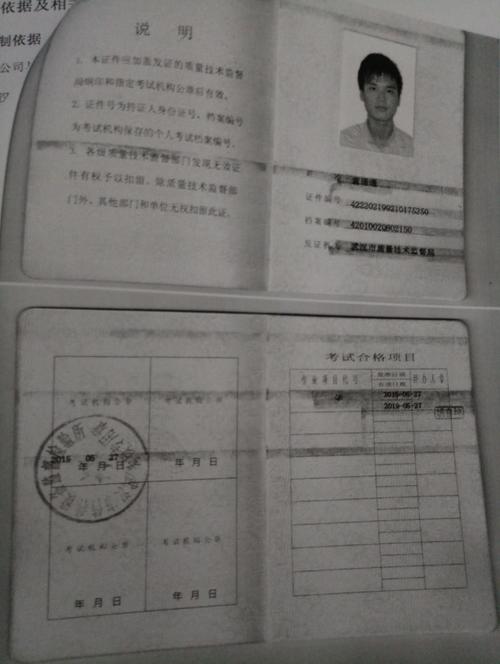 依据及相
制依据
公司
说 明
1. 本证件应加盖发证的质量技术监督
局钢印和指定考试机构公章后有效。
2. 证件号为持证人身份证号，档案编号
为考试机构保存的个人考试档案编号。
3. 各级质量技术监督部门发现无效证
件有权予以扣留，除质量技术监督部
门外，其他部门和单位无权扣留此证。
证件编号
档案编号 42010020802150
发证机关 武汉市质量技术监督局
考试机构公章
考试机构公章
2015 05 27
年 月 日
年 月 日
考试机构公章
考试机构公章
年 月 日
年 月 日
考试合格项目
作业项目代号
批准日期
有效日期
经办人章
2015-05-27
2019-05-27